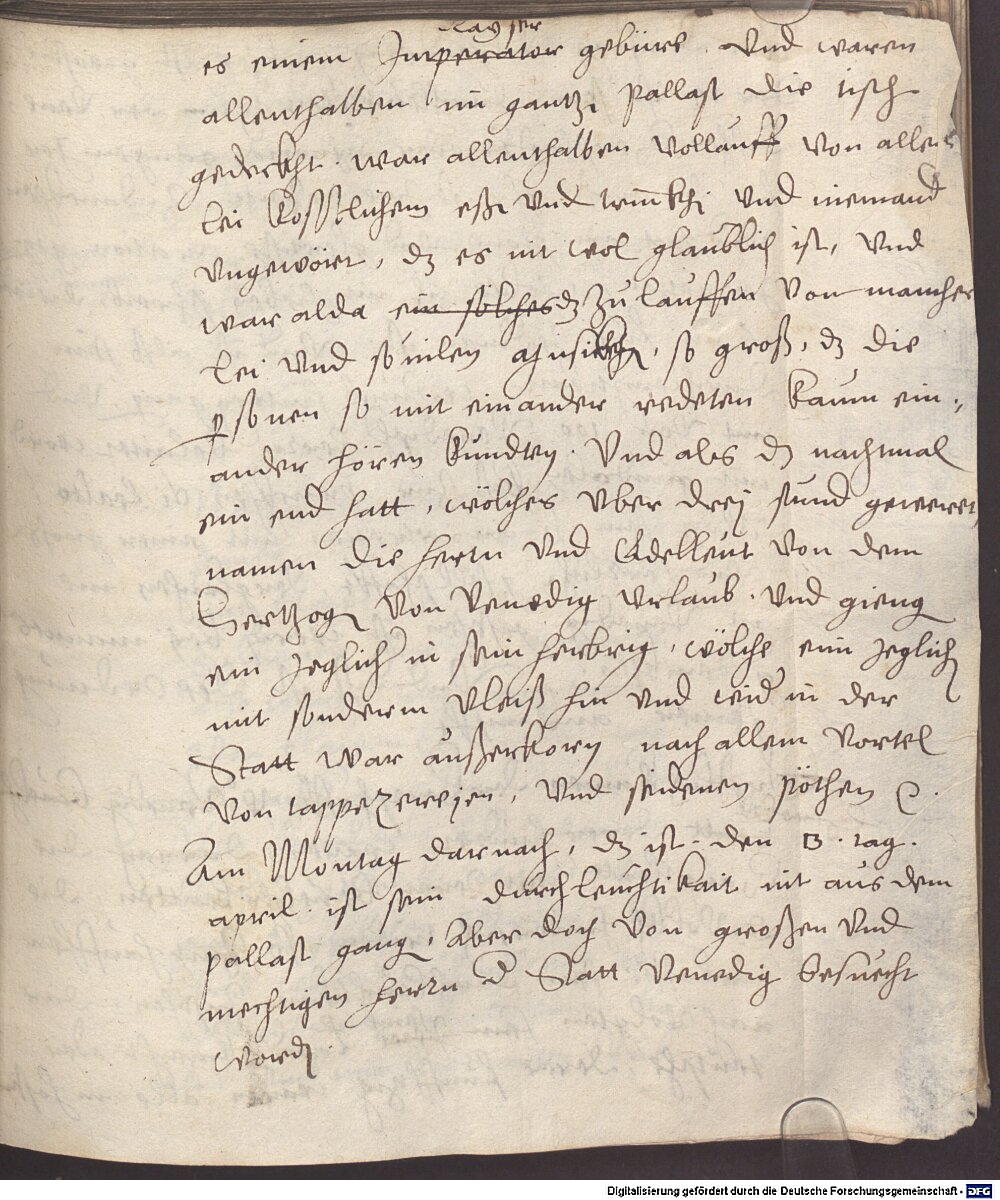 Kayser
es einem Imperator gebüre. Und waren
allenthalben im gantzen pallast die tisch
gedeckht. war allenthalben vollauff von aller
lei kösstlichem essen und trinckhen und niemand
ungewört, dz es nit wol glaublich ist, Und
war alda ein sölches dz zulauffen von mancher
lei und sovilen, so groß, dz die
personen so mit einander redeten kaum ein,
ander hören kundten. Und als dz nachtmal
ein end hatt, wölches uber drej stund geweret,
namen die herrn und Edelleut von dem
Hertzogen von Venedig urlaub. und gieng
ein jeglicher in sein herbrig, wölche eim jeglichen
mit sonderm vleiß hin und wider in der
Statt war außerkorn nach allem vortel
von tappezereyen, und seidenen
Am Montag darnach, dz ist. den 13. tag.
april. ist sein durchleuchtikait nit aus dem
pallast gang, Aber doch von großen und
mechtigen herrn d Statt Venedig besuecht
worden.
Digitalisierung gefördert durch die Deutsche Forschungsgemeinschaft - DFG